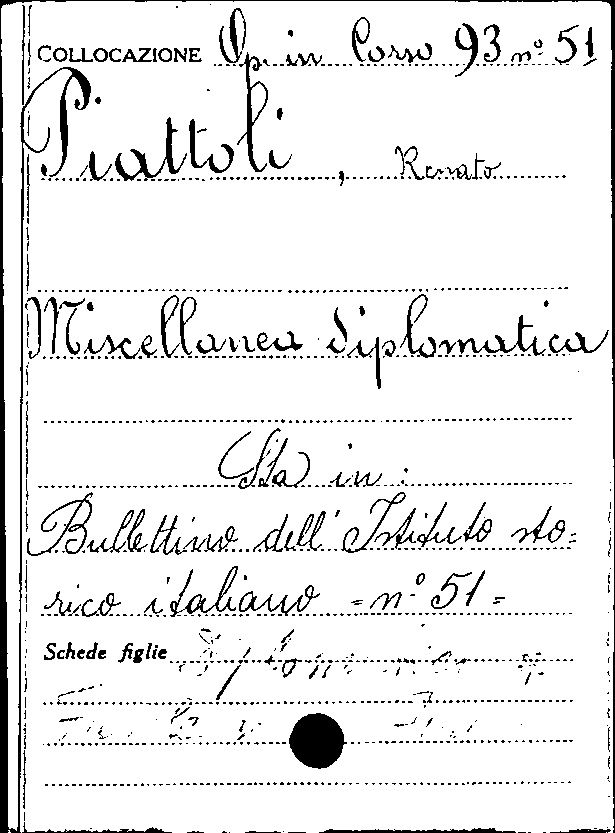 COLLOCAZIONE Op. in Corso 93 n° 51
Piattoli, Renato
Miscellanea diplomatica
Sta in:
Bullettino dell'Istituto sto=
rico italiano = n° 51 =
Schede figlie